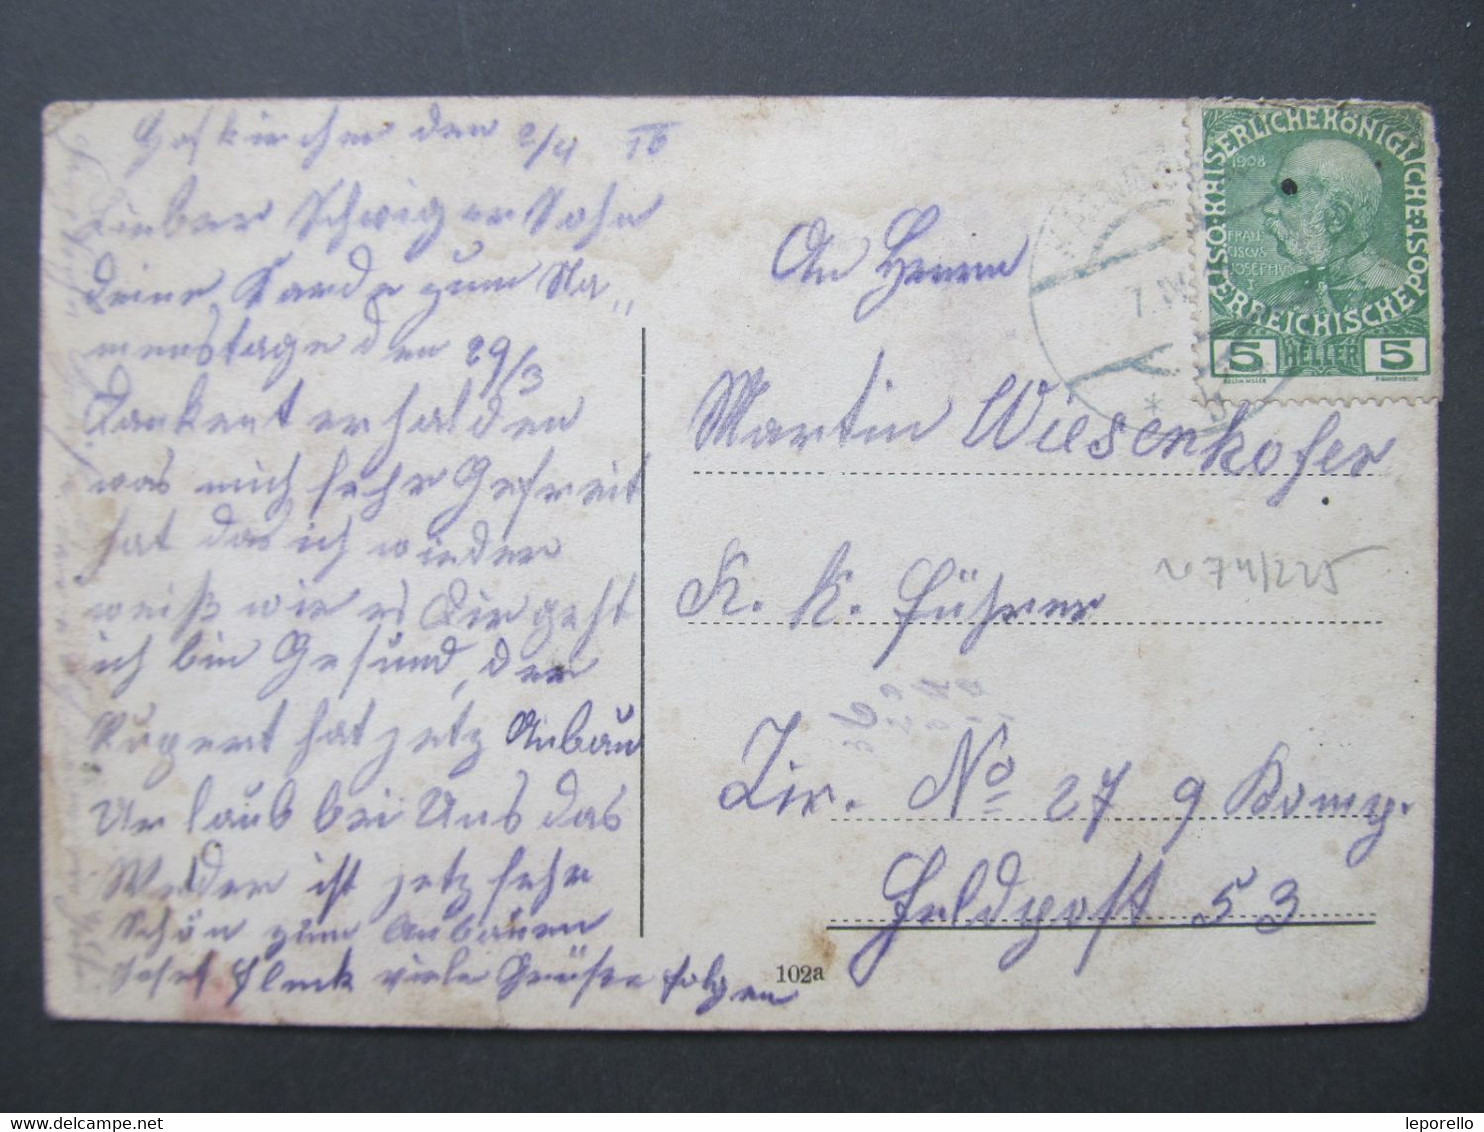 Hofkirchen den 2/4 16
Lieber Schwiger Sohn
deine Karde zum Na„
menstage den 29/3
Dankent erhalden
was mich sehr Gefreit
hat das ich wieder
weiß wie es Dir geht
ich bin Gesund, der
Rupert hat jetz Anbau
Urlaub bei Uns das
Wedder ist jetz sehr
Schön zum Anbauen
Josef Fleck viele Grüße folgen
An Herrn
Martin Wiesenhofer
K. K. Führer
Lir. No 27 9 Komp.
Feldpost 53
~ 74/225
102a
KAISERLICHE KÖNIGLICHE
ÖSTERREICHISCHE POST
1908
FRAN
CISCVS
JOSEPHVS
I
5 HELLER 5
7. IV
leporello